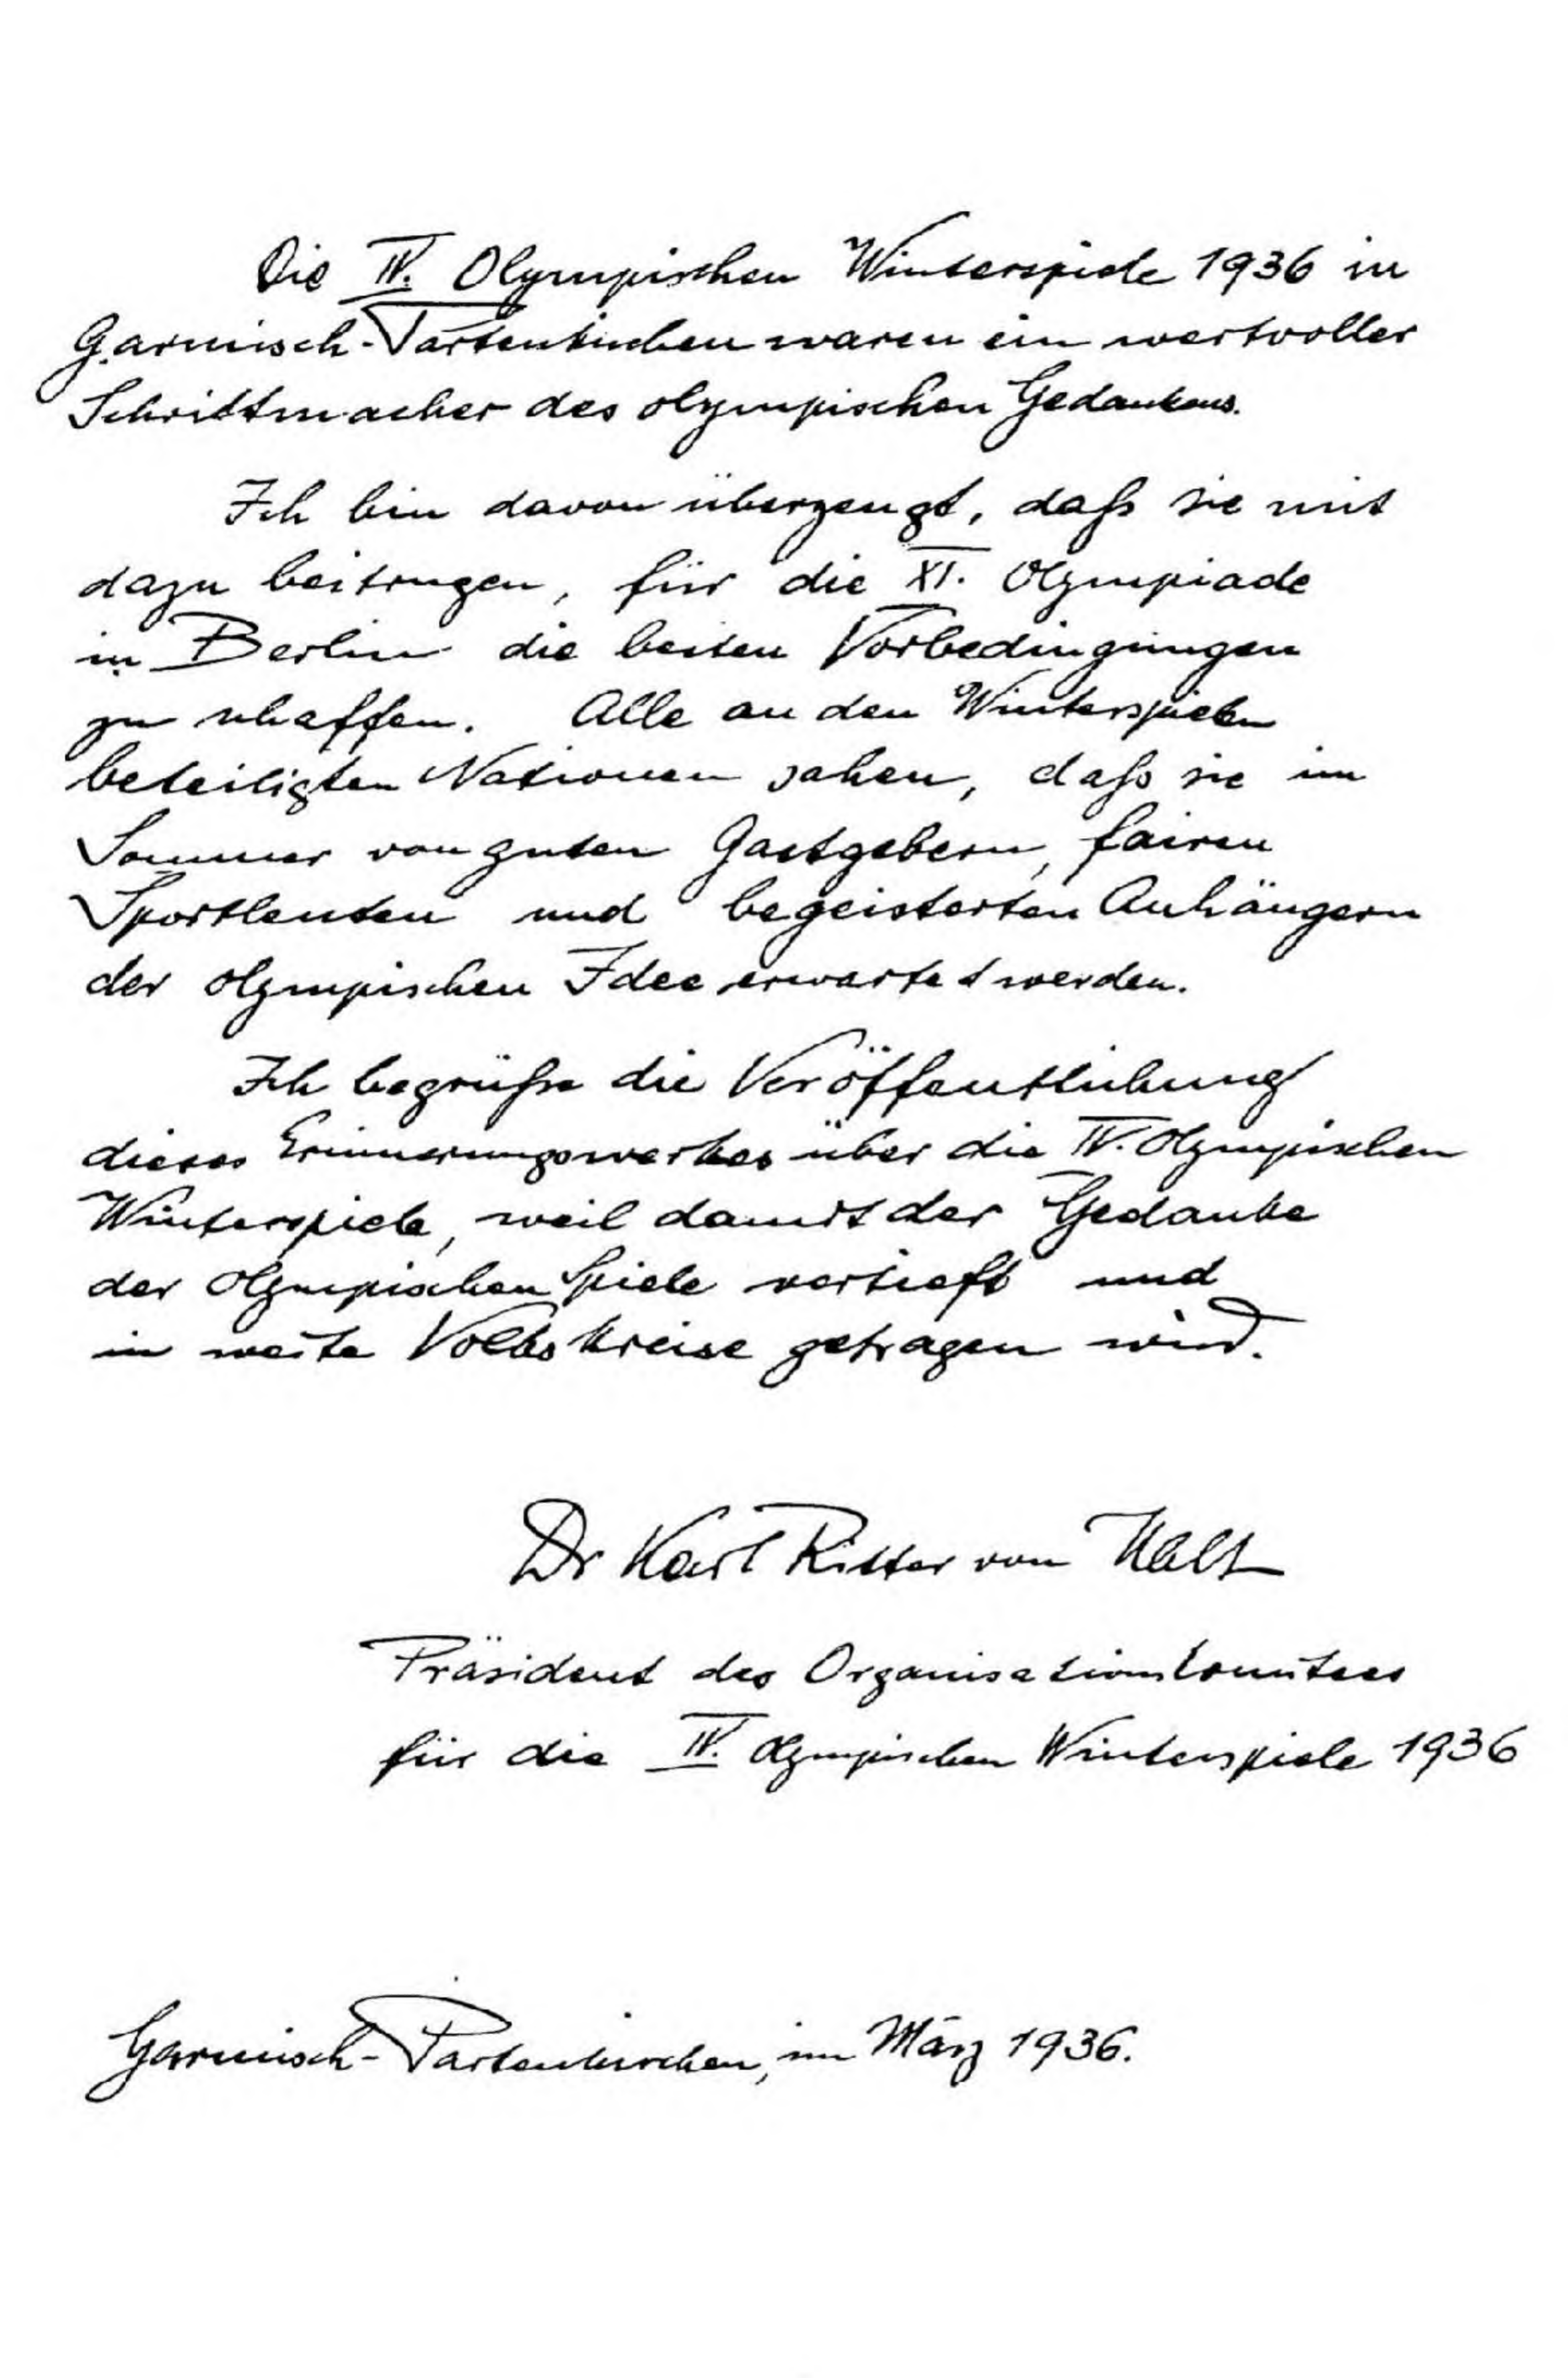 Die IV. Olympischen Winterspiele 1936 in
Garmisch-Partenkirchen waren ein wertvoller
Schrittmacher des olympischen Gedankens.
Ich bin davon überzeugt, daß sie mit
dazu beitrugen, für die XI. Olympiade
in Berlin die besten Vorbedingungen
zu schaffen. Alle an den Winterspielen
beteiligten Nationen sahen, daß sie im
Sommer von guten Gastgebern, fairen
Sportleuten und begeisterten Anhängern
der olympischen Idee erwartet werden.
Ich begrüße die Veröffentlichung
dieses Erinnerungswerkes über die IV. Olympischen
Winterspiele, weil damit der Gedanke
der Olympischen Spiele vertieft und
in weite Volkskreise getragen wird.
Dr Karl Ritter von Halt
Präsident des Organisationskomitees
für die IV. Olympischen Winterspiele 1936
Garmisch-Partenkirchen, im März 1936.